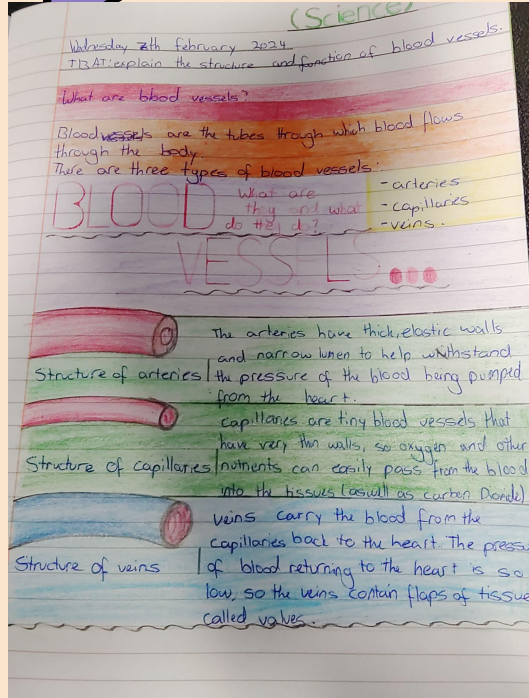 (Science)
Wednesday 7th february 2024
TBAT: explain the structure and function of blood vessels.
What are blood vessels?
Blood vessels are the tubes through which blood flows
through the body.
There are three types of blood vessels:
- arteries
- capillaries
- veins.
BLOOD
What are
they and what
do they do?
VESSELS...
The arteries have thick, elastic walls
and narrow lumen to help withstand
the pressure of the blood being pumped
from the heart.
Structure of arteries
capillaries are tiny blood vessels that
have very thin walls, so oxygen and other
nutrients can easily pass from the blood
into the tissues (aswell as carbon Dioxide)
Structure of capillaries
veins carry the blood from the
capillaries back to the heart. The press
of blood returning to the heart is so
low, so the veins contain flaps of tissue
called valves.
Structure of veins